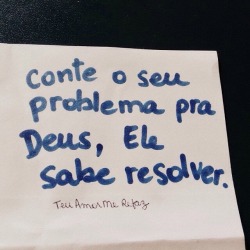 Conte o seu
problema pra
Deus, Ele
sabe resolver.
Teu Amor Me Refaz